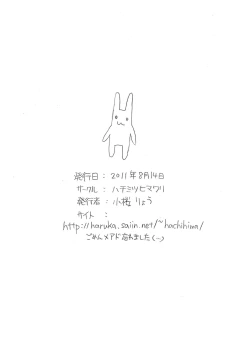 発行日：2011年8月14日
サークル：ハチミツヒマワリ
発行者：小桜りょう
サイト：
http://haruka.saiin.net/~hachihima/
ごめんメアド忘れました(-)